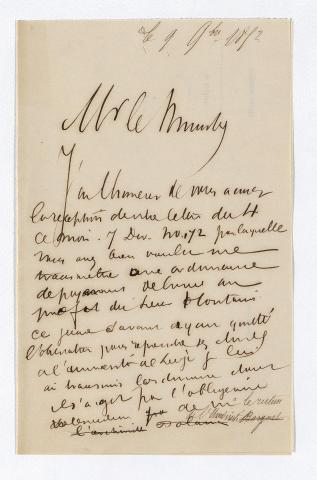 le 9 9bre 1892
Mr le Ministre
J'ai l'honneur de vous accuser
la réception de votre lettre du 4
ce mois. 7 Dir. No. 172 par laquelle
vous avez bien voulu me
transmettre une ordonnance
de payement de
profit du Sieur
ce jeune savant ayant quitté
l'observatoire pour reprendre ses études
à l'université de Liège je lui
ai transmis l'ordonnance dont
il s'agit par l'obligeance
de Mr le recteur